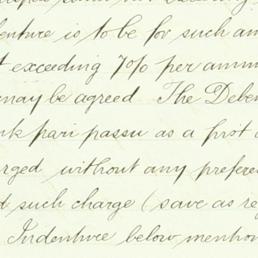 enture is to be for such am
t exceeding 7% per annum
may be agreed The Deben
nk pari passu as a first c
rged without any prefere
d such charge (save as re
Indenture below mention